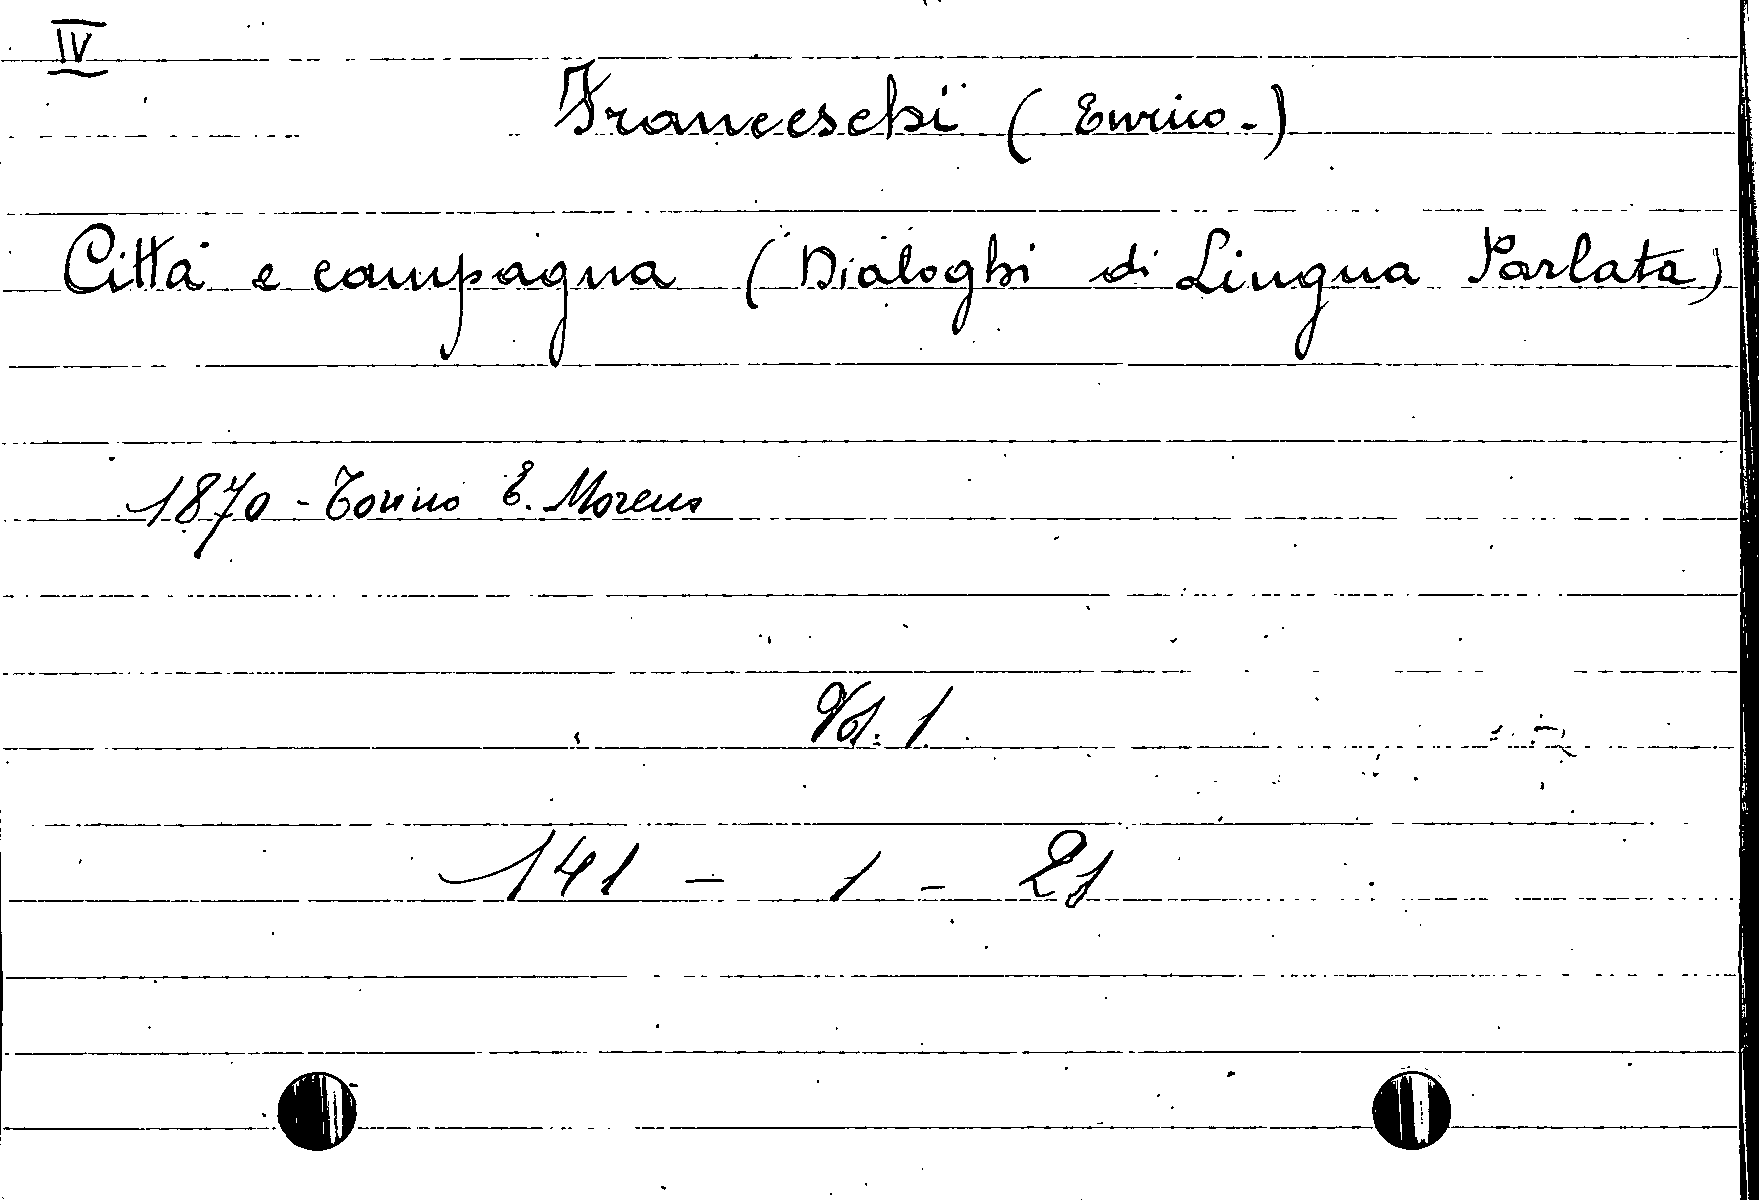 IV
Franceschi (Enrico-)
Città e campagna (Dialoghi di Lingua Parlata)
1870 - Torino E. Moreno
Vol. 1
141 - 1 - 21